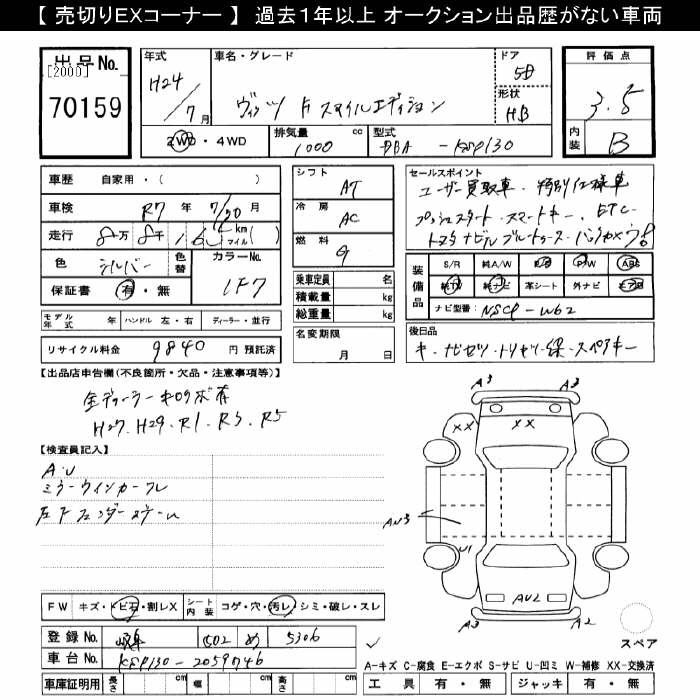 【 売切りEXコーナー 】 過去１年以上 オークション出品歴がない車両
出品No. [2000] 70159
年式 H24/7月
車名・グレード ヴィッツ F スマイルエディション
ドア 5D
形状 HB
評価点 3.5
内装 B
2WD・4WD
排気量 1000 cc
型式 DBA-KSP130
車歴 自家用・( )
車検 R7年 7/20月
走行 8万8千16 km マイル( )
色 シルバー 色替
カラーNo. 1F7
保証書 有・無
シフト AT
冷房 AC
燃料 G
乗車定員 名
積載量 kg
総重量 kg
セールスポイント
ユーザー買取車・特別仕様車
プッシュスタート・スマートキー・ETC・
トヨタナビ ブルートゥース・バックカメラ!
装備品 S/R 純A/W P/S P/W ABS
純TV 純ナビ 革シート 外ナビ エアB
ナビ型番: NSCP-W62
モデル年式 年 ハンドル 左・右 ディーラー・並行
リサイクル料金 9840 円 預託済
名変期限 月 日
後日品
キ・ナビセツ・トリセツ・録・スペアキー
【出品店申告欄(不良箇所・欠品・注意事項等)】
全ディーラーキロク簿有
H27. H29. R1. R3. R5
【検査員記入】
A・U
ミラーウインカーワレ
左Fフェンダー
FW キズ・トビ石・割レX
シート内装 コゲ・穴・汚レ・シミ・破レ・スレ
登録No. 岐阜 502 め 5306
車台No. KSP130-2059746
車庫証明用 長さ cm 幅 cm 高さ cm
A3
A3
XX
XX
XX
AU3
U1
AU2
A3
A2
スペア
A-キズ C-腐食 E-エクボ S-サビ U-凹ミ W-補修 XX-交換済
工具 有・無 ジャッキ 有・無